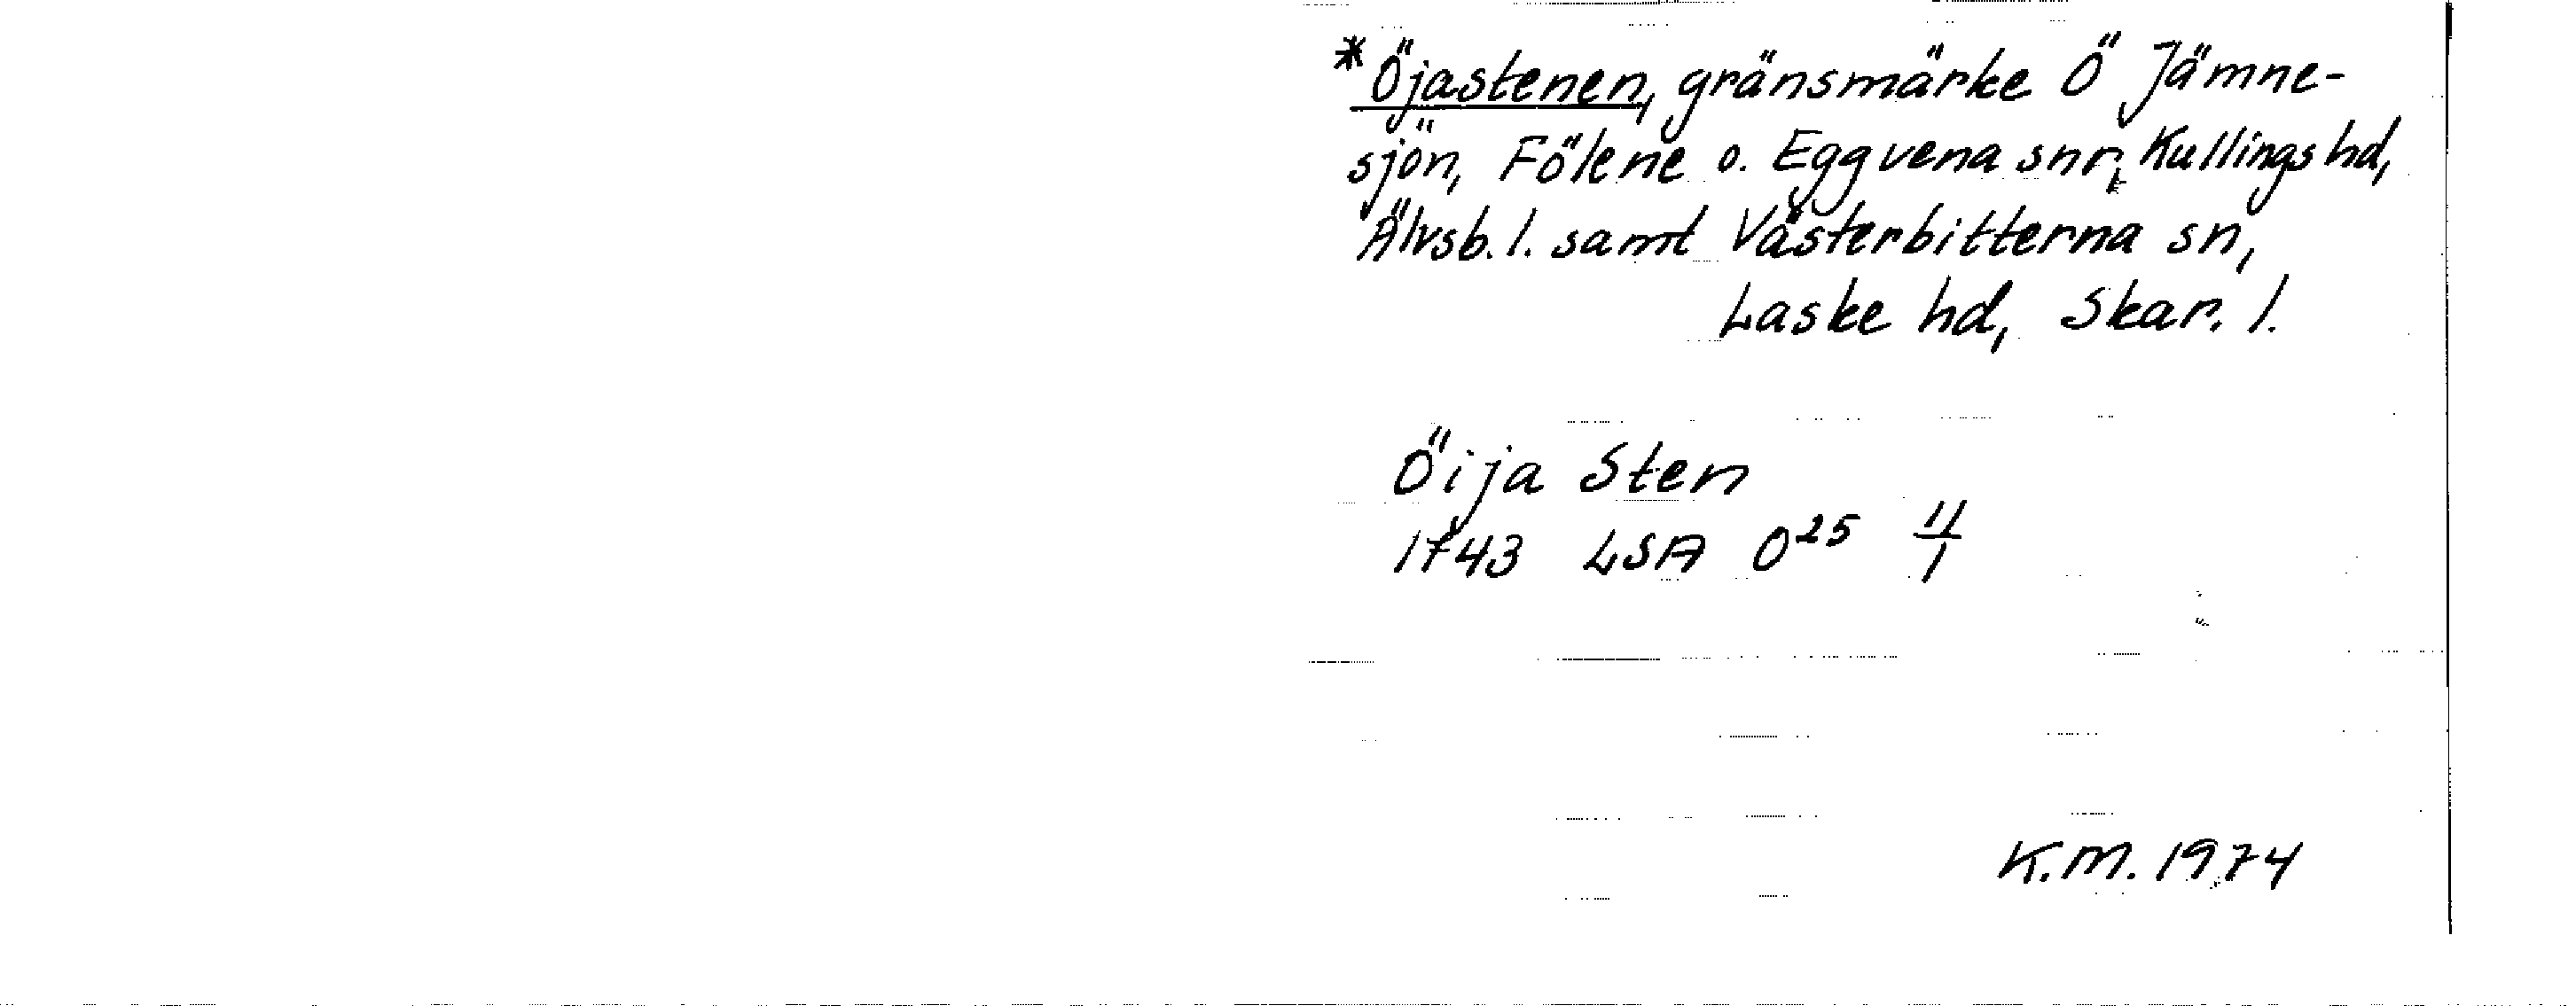 *Öjastenen, gränsmärke Ö Jämne-
sjön, Fölene o. Eggvena snr, Kullings hd,
Älvsb. l. samt Västerbitterna sn,
Laske hd, Skar. l.
Öija Sten
1743 LSA O25 11/1
K.M. 1974